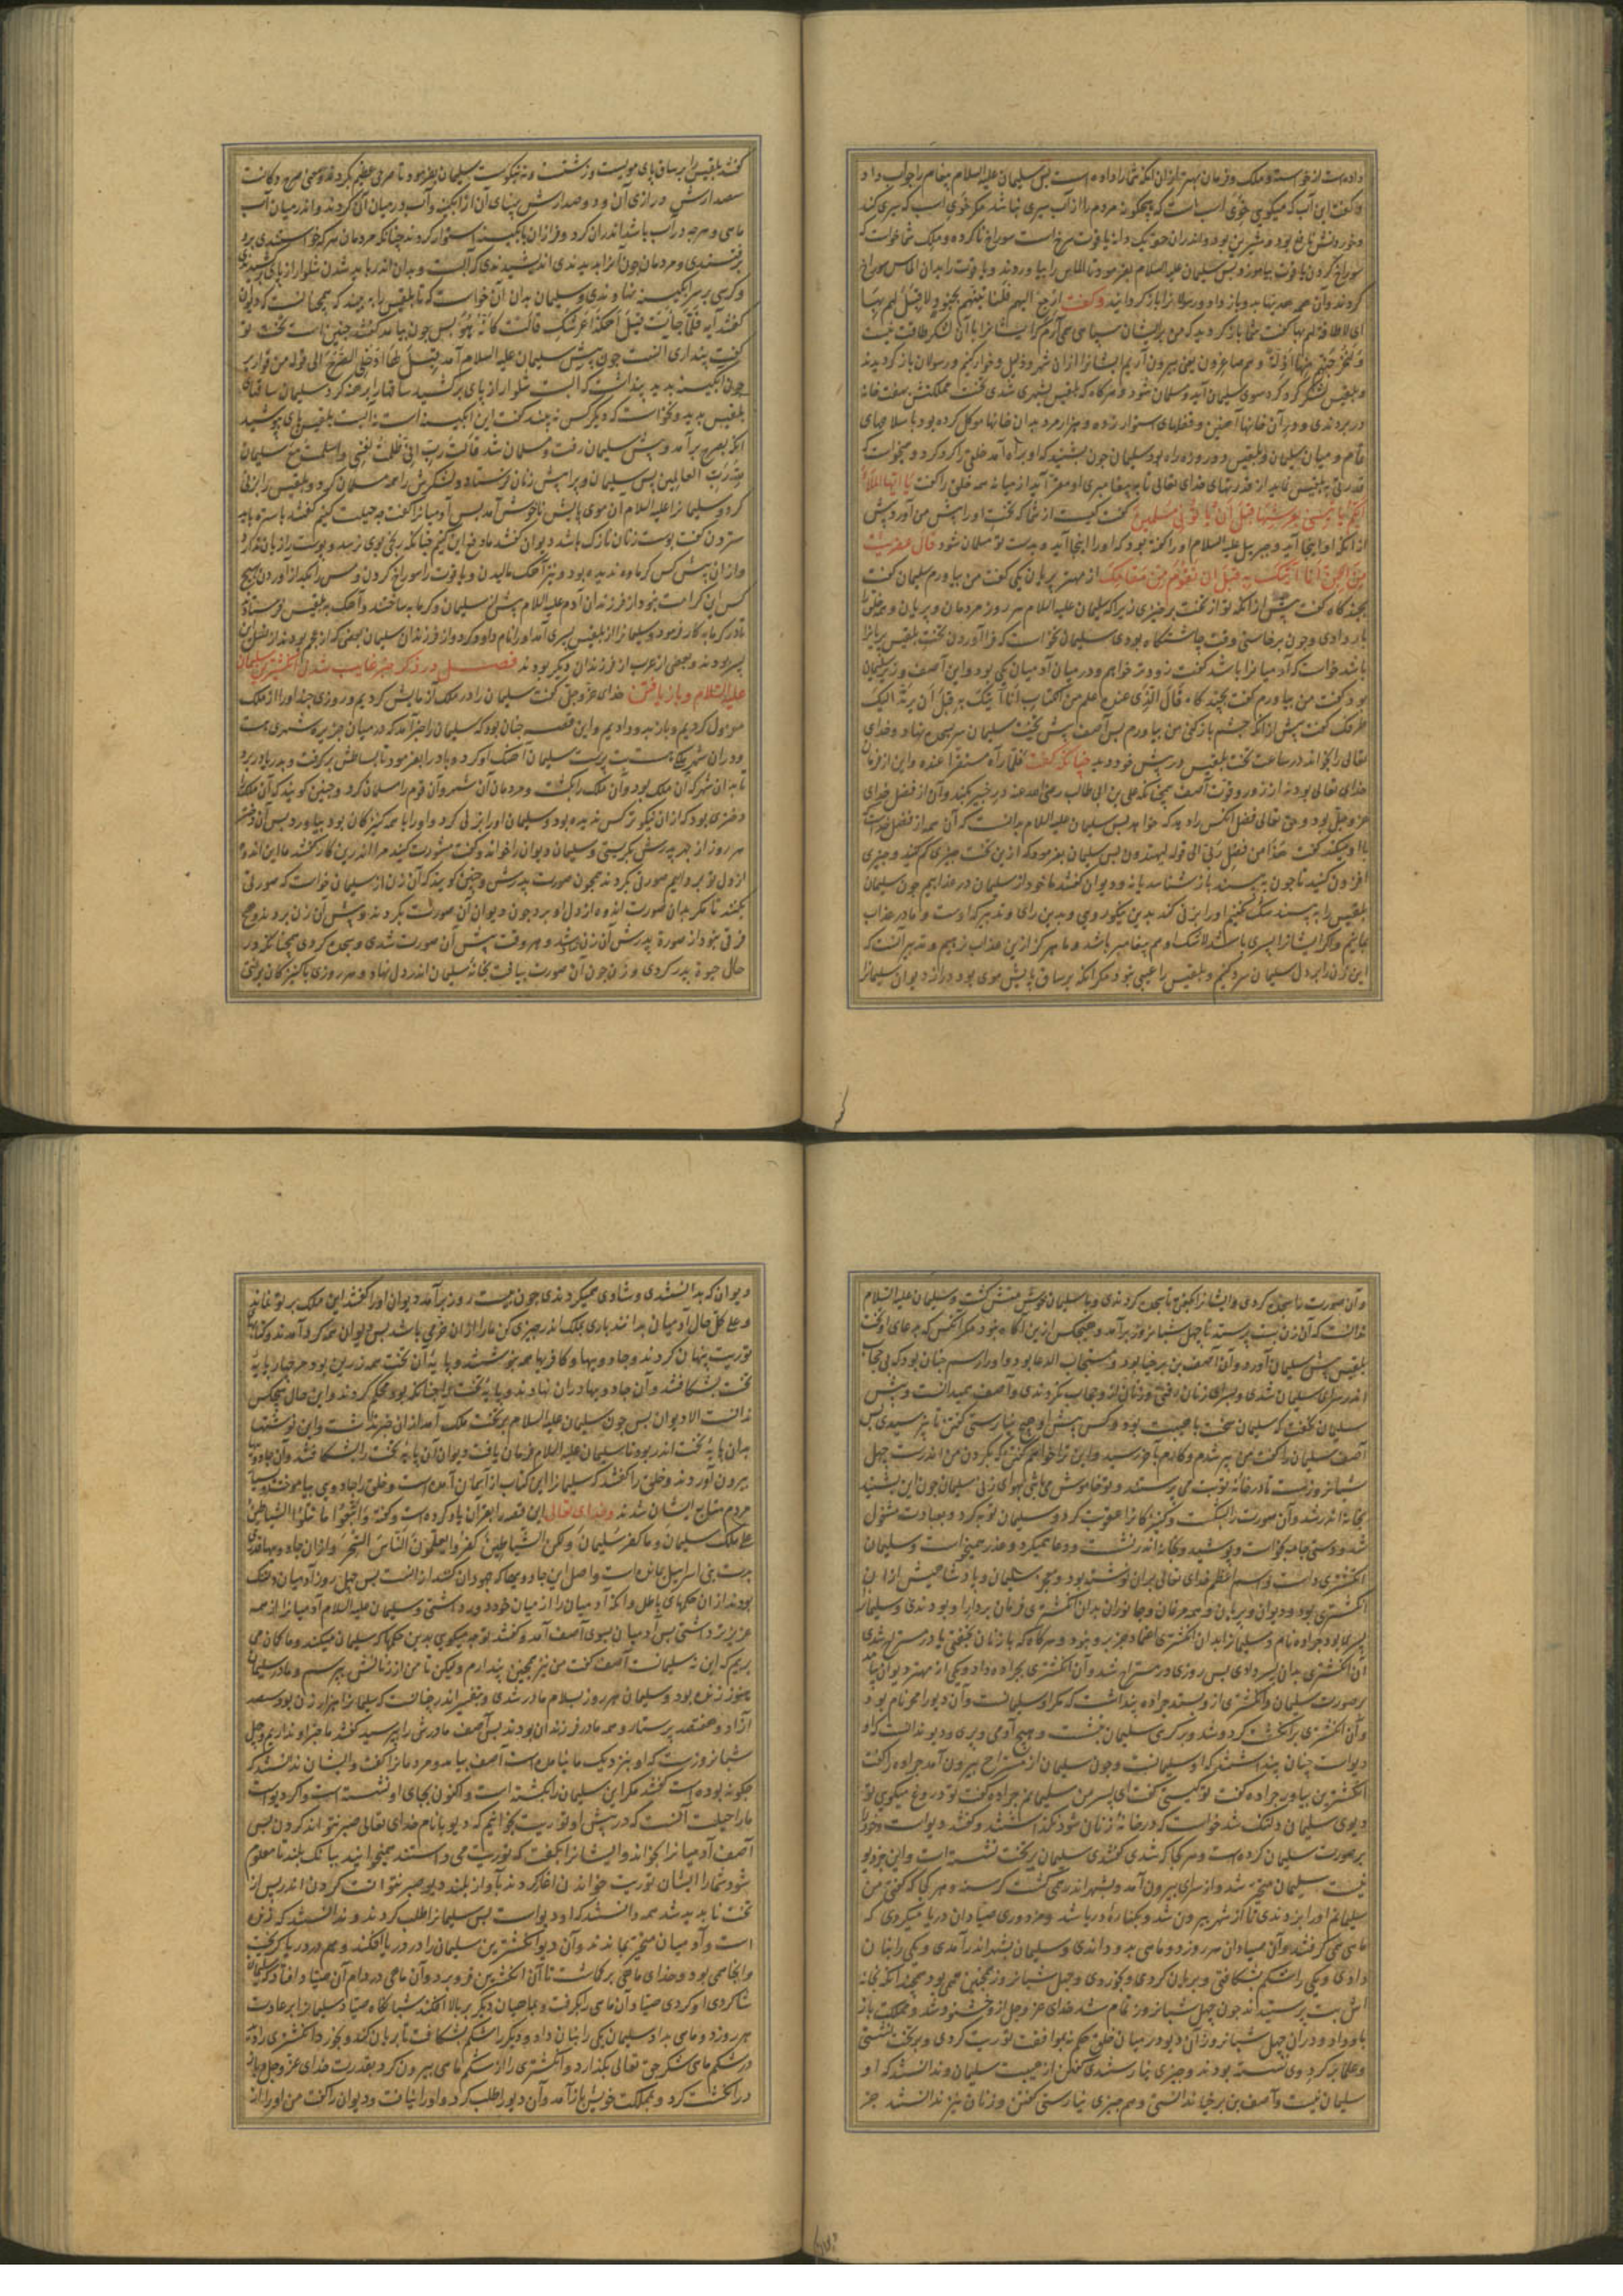 داده است از خواسته و ملک و فرمان بهتر از ان انکه شما را داده است پس سلیمان علیه السلام پیغام را جواب داد
و کفت این آب که میکویی خوی اسب است که هیچکونه مردم را از آب سیری نباشد مکر خوی اسب که سیری کند
سوراخ کردن یاقوت بیاموزد پس سلیمان علیه السلام بفرمود تا الماس را بیاوردند و یاقوت را بدان الماس سوراخ
کردند وآن همه هدیتها بدو باز داد و رسولانرا باز کردانید وکفت ارجع الیهم فلنأتینهم بجنود لا قبل لهم بها
ای لا طاقة لهم بها کفت شما باز کردید که من بر ایشان سپاهی می آرم که ایشانرا با آن لشکر طاقت نیست
ولنخرجنهم منها اذلة وهم صاغرون یعنی بیرون آریم ایشانرا از ان شهر و ذلیل وخوار کنیم ورسولان باز کردیدند
قدرتی به بلقیس نماید از قدرتهای خدای تعالی تا به پیغامبری او مقر آید از میانه همه خلق را کفت یا ایها الملأ
ایکم یأتینی بعرشها قبل ان یأتونی مسلمین کفت کیست از شما که تخت او را پیش من آورد پیش
از انکه او اینجا آید و جبریل علیه السلام او را کفته بود که او را اینجا آید و بدست تو مسلمان شود قال عفریت
من الجن انا آتیک به قبل ان تقوم من مقامک از مهتر پریان یکی کفت من بیاورم سلیمان کفت
بچند کاه کفت پیش از انکه تو از تخت برخیزی زیرا که سلیمان علیه السلام هر روز مردمان و پریان و همه خلق را
بار دادی و چون برخاستی وقت چاشتکاه بودی سلیمان نخواست که فرا آوردن تخت بلقیس پریانرا
باشد خواست که آدمیانرا باشد کفت زودتر خواهم ودر میان آدمیان یکی بود واین آصف وزیر سلیمان
بود کفت من بیاورم کفت بچند کاه قال الذی عنده علم من الکتاب انا آتیک به قبل ان یرتد الیک
طرفک کفت پیش از انکه چشم باز کنی من بیاورم پس آصف پیش تخت سلیمان سر بسجده نهاد و خدای
تعالی را بخواند در ساعت تخت بلقیس در پیش خود دید چنانکه کفت فلما رآه مستقرا عنده و این از فرمان
خدای تعالی بود نه از زور و قوت آصف همچنانکه علی بن ابی طالب رضی الله عنه در خیبر بکند وآن از فضل خدای
عز وجل بود و حق تعالی فضل آنکس را دهد که خواهد پس سلیمان علیه السلام بدانست که آن همه از فضل خداست
با او میکند کفت هذا من فضل ربی الی قوله لیهتدون پس سلیمان بفرمود که ازین تخت چیزی کم کنید و چیزی
افزون کنید تا چون به بیند باز شناسد یا نه و دیوان کفتند ما خود از سلیمان در عذابیم چون سلیمان
بلقیس را به بیند شک نکنیم او را بزنی کند بدین نیکورویی و بدین رای و تدبیر که اوست و ما در عذاب
بمانیم واکر ایشانرا پسری باشد لاشک او هم پیغامبر باشد و ما هرکز ازین عذاب نرهیم و تدبیر آنست که
این زن را بر دل سلیمان سرد کنیم و بلقیس را عیبی نبود مکر انکه بر ساق پایش موی بود دراز دیوان سلیمانرا
کفتند بلقیس را بر ساق پای مویست و زشتست و نه نیکوست سلیمان بفرمود تا صرحی عظیم بکردند
ماهی و هرچه در آب باشد اندران کرد و فراز ان بآبکینه استوار کردند چنانکه مردمان هرکه خواستندی بر
وکرسی بر سر آبکینه نهادندی وسلیمان بدان آن خواست که تا بلقیس را به بیند که همچنانست که دیوان
کفتند آیه فلما جاءت قیل اهکذا عرشک قالت کانه هو پس چون بیامد کفتند چنین است تخت تو
کفت پنداری آنست چون پیش سلیمان علیه السلام آمد قیل لها ادخلی الصرح الی قوله من قواریر
چون آبکینه بدید پنداشت که آبست شلوار از پای برکشید ساقها را برهنه کرد سلیمان ساقهای
بلقیس بدید ونخواست که دیکر کس به بیند کفت این آبکینه است نه آبست بلقیس پای بپوشید
انکه بصرح برآمد و پیش سلیمان رفت و مسلمان شد قالت رب انی ظلمت نفسی واسلمت مع سلیمان
لله رب العالمین پس سلیمان ویرا پیش زنان فرستاد و لشکرش را همه مسلمان کرد و بلقیس را بزنی
کرد و سلیمانرا علیه السلام آن موی پایش ناخوش آمد پس آدمیانرا کفت چه حیلت کنیم کفتند باستره باید
ستردن کفت پوست زنان نازک باشد دیوان کفتند ما دفع این کنیم چنانکه رنجی بوی نرسد و پوست را زیان ندارد
کس این کرامت نبود از فرزندان آدم علیه السلام پیش از سلیمان و کرمابه ساختند وآهک به بلقیس فرستاد
پسر بودند وبعضی از عرب از فرزندان دیکر بودند فصل در ذکر خبر غایب شدن انکشتری سلیمان
علیه السلام و باز یافتن خدای عز وجل کفت سلیمان را در ملک آزمایش کردیم و روزی چند او را از ملک
معزول کردیم و باز بدو دادیم و این قصه چنان بود که سلیمان را خبر آمد که در میان جزیره شهری هست
تا به ان شهر که آن ملک بود وآن ملک را بکشت و مردمان آن شهر وآن قوم را مسلمان کرد و چنین کویند که آن ملک را
دختری بود که از ان نیکوتر کس ندیده بود و سلیمان او را بزنی کرد و او را با همه کنیزکان بود بیاورد پس آن دختر
هر روز از بهر پدر سختی بکریستی و سلیمان دیوان را خواند و کفت مشورت کنید مرا اندرین کار کفتند ما این اندوه
از دل او ببریم صورتی بکردند همچون صورت پدرش و چنین کویند که آن زن از سلیمان خواست که صورتی
بکنند تا مکر بدان صورت اندوه از دل او برد چون دیوان آن صورت بکردند و پیش آن زن بردند و هیچ
فرقی نبود از صورة پدرش آن زن و هر وقت پیش آن صورت شدی و سجده کردی همچنانکه در
حال حیوة پدر کردی و زن چون آن صورت بیافت بخانه سلیمان اندر دل نهاد و هر روزی با کنیزکان
وآن صورت را سجده کردی و ایشانرا بکفتی تا سجده کردندی و با سلیمان خوش منش کشت و سلیمان علیه السلام
ندانست که آن زن بت پرستد تا چهل شبانروز برآمد و هیچکس ازین آکاه نبود مکر آنکس که بدعای او تخت
بلقیس پیش سلیمان آورد وآن آصف بن برخیا بود و مستجاب الدعا بود و او را رسم چنان بود که بی حجاب
اندر سرای سلیمان شدی و بسرای زنان رفتی و زنان از و حجاب نکردندی و آصف بدانست و پیش
سلیمان نکفت که سلیمان سخت باهیبت بود و کس پیش او هیچ نیارستی کفتن تا بپرسیدی پس
آصف سلیمان را کفت من پیر شدم و کارم بآخر رسید
شبانروزست تا در خانه تو بت می پرستند و تو خاموش می باشی بهوای زنی سلیمان چون این بشنید
بخانه اندر شد وآن صورت را بشکست و کنیزکانرا عقوبت کرد و سلیمان توبه کرد و بعبادت مشغول
انکشتری داشت و اسم اعظم خدای تعالی بران نوشته بود و معجز سلیمان و پادشاهیش از ان
انکشتری بود و دیوان و پریان و همه مرغان و جانوران بدان انکشتری فرمان بردار او بودندی و سلیمانرا
آن انکشتری بدان پسر دادی پس روزی در مستراح شد وآن انکشتری بجراده داد و یکی از مهتر دیوان بیامد
بر صورت سلیمان وانکشتری از و بستد جراده پنداشت که مکر او سلیمانست وآن دیو را صخر نام بود
وآن انکشتری در انکشت کرد و شد و بر کرسی سلیمان بنشست و هیچ آدمی و پری و دیو ندانست که او
دیواست چنان پنداشتند که او سلیمانست و چون سلیمان از مستراح بیرون آمد جراده را کفت
انکشترین بیاور جراده کفت تو کیستی کفت ای پسر من سلیمانم جراده کفت تو دروغ میکویی تو
دیوی سلیمان دلتنک شد خواست که در خانه زنان شود نکذاشتند و کفتند دیواست و خود را
بر صورت سلیمان کرده است و هر کجا که شدی کفتندی سلیمان بر تخت نشسته است و این نیز دیو
نیست سلیمان متحیر شد و از سرای بیرون آمد و بشهر اندر همی کشت کرسنه و هر کجا که کفتی من
سلیمانم او را بزدندی تا از شهر بیرون شد و بکناره دریا شد و مزدوری صیادان دریا میکردی که
ماهی می کرفتند وآن صیادان هر روز دو ماهی بدو دادندی و سلیمان بشهر اندر آمدی و یکی را بنان
دادی و یکی را شکم بشکافتی و بریان کردی و بخوردی و چهل شبانروز همچنین همی بود بچند انکه بخانه
اش بت پرستیدند چون چهل شبانروز تمام شد خدای عز و جل از وخشنود شد و مملکت باز
باو داد و دران چهل شبانروز آن دیو در میان خلق حکم بموافقت توریت کردی و بر تخت نشستی
وعلما بکرد وی نشسته بودند و چیزی نیارستندی کفتن از هیبت سلیمان و ندانستند که او
سلیمان نیست وآصف بن برخیا ندانستی و هم چیزی نیارستی کفتن و زنان نیز ندانستند جز
دیوان که بدانستندی و شادی همیکردندی چون بیست روز برآمد دیوان او را کفتند این ملک بر تو نماند
توریت پنهان کردند و جادوییها و کافریها همه بنوشتند و پایه آن تخت همه زرین بود و هر چهار پایه
تخت بشکافتند وآن جادوییها دران نهادند و پایه تخت را چنانکه بود محکم کردند و این حال هیچکس
ندانست الا دیوان پس چون سلیمان علیه السلام بر تخت ملک آمد از ان خبر نداشت و این نوشتها
بدان پایه تخت اندر بود تا سلیمان علیه السلام فرمان یافت دیوان آن پایه تخت را بشکافتند وآن جادوییها
بیرون آوردند و خلق را کفتند که سلیمانرا این کتاب از آسمان آمده است و خلق را جادویی بیاموختند و بسیار
مردم متابع ایشان شدند وخدای تعالی این قصه را بقرآن یاد کرده است و کفته واتبعوا ما تتلوا الشیاطین
علی ملک سلیمان وما کفر سلیمان ولکن الشیاطین کفروا یعلمون الناس السحر و از ان جادوییها قدری
بدست بنی اسرائیل مانده است و اصل این جادوییها که جهودان کنند از انست پس چهل روز آدمیان دلتنک
بودند از ان حکمهای باطل و انکه آدمیان را از میان خود دور داشتی و سلیمان علیه السلام آدمیانرا از همه
عزیزتر داشتی پس آدمیان بسوی آصف آمدند و کفتند تو چه میکویی بدین حکمها که سلیمان میکند و ما کمان می
بریم که این نه سلیمانست آصف کفت من نیز همچنین پندارم ولیکن تا من از زنانش بپرسم و مادر سلیمان
هنوز زنده بود و سلیمان هر روز بسلام مادر شدی و بتفسیر اندر چنانست که سلیمانرا هزار زن بود سیصد
آزاد و هفتصد پرستار و همه مادر فرزندان بودند پس آصف مادرش را بپرسید کفتند ما خبر او نداریم و چهل
شبانروزست که او بنزدیک ما نیامده است آصف بیامد و مردمانرا کفت و ایشان ندانستند که
چکونه بوده است کفتند مکر این سلیمان را بکشته است و اکنون بجای او نشسته است و اکر دیواست
ما را حیلت آنست که در پیش او توریت بخوانیم که دیو با نام خدای تعالی صبر نتواند کردن پس
آصف آدمیانرا بخواند و ایشانرا بکفت که توریت می دانستند همیخوانید ببانک بلند تا معلوم
شود شما را ایشان توریت خواندن آغاز کردند بآواز بلند دیو صبر نتوانست کردن اندر پس از
تخت ناپدید شد همه دانستند که او دیواست پس سلیمانرا طلب کردند و ندانستند که زنده
است وآدمیان متحیر بماندند وآن دیو انکشترین سلیمان را در دریا افکند و هم در دریا کریخت
شاکردی او کردی صیاد آن ماهی را بکرفت و با ماهیان دیکر بر بالا افکند شبانکاه صیاد سلیمانرا بر عادت
هر روز دو ماهی بداد سلیمان یکی را بنان داد و دیکر را شکم بشکافت تا بریان کند و بخورد انکشتری را دید
در شکم ماهی شکر حق تعالی بکذارد و انکشتری را از شکم ماهی بیرون کرد بقدرت خدای عز وجل باز
در انکشت کرد و بمملکت خویش باز آمد وآن دیو را طلب کرد و او را نیافت و دیوان را کفت من او را از